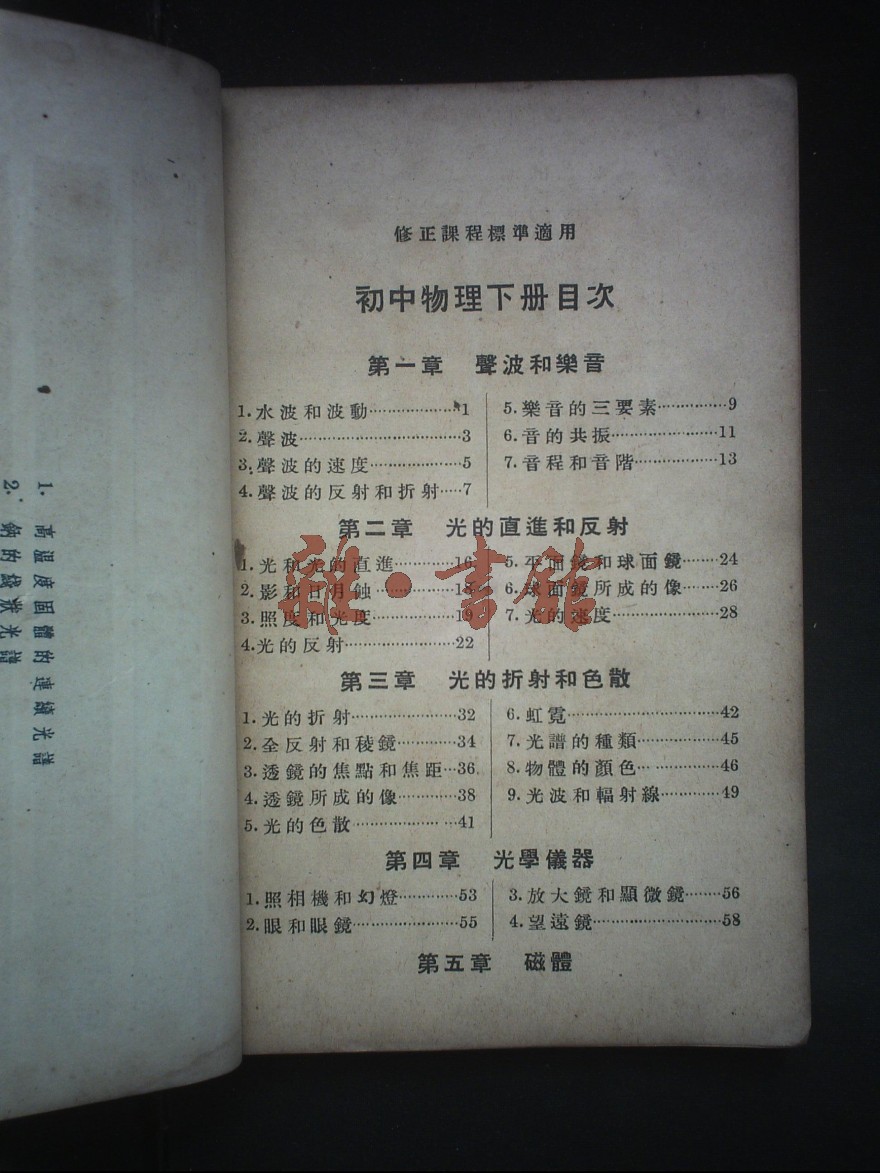 修正課程標準適用
初中物理下册目次
第一章 聲波和樂音
1.水波和波動………………1
2.聲波………………3
3.聲波的速度………………5
4.聲波的反射和折射……7
5.樂音的三要素……………9
6.音的共振………………11
7.音程和音階……………13
第二章 光的直進和反射
1.光和光的直進………16
2.影和日月蝕………18
3.照度和光度………19
4.光的反射………………22
5.平面鏡和球面鏡……24
6.球面鏡所成的像……26
7.光的速度………………28
第三章 光的折射和色散
1.光的折射………………32
2.全反射和稜鏡…………34
3.透鏡的焦點和焦距…36
4.透鏡所成的像…………38
5.光的色散………………41
6.虹霓………………42
7.光譜的種類……………45
8.物體的顏色……………46
9.光波和輻射線…………49
第四章 光學儀器
1.照相機和幻燈…………53
2.眼和眼鏡………………55
3.放大鏡和顯微鏡……56
4.望遠鏡………………58
第五章 磁體
雜·書館
1. 高溫度固體的連續光譜
2. 鈉的綫狀光譜